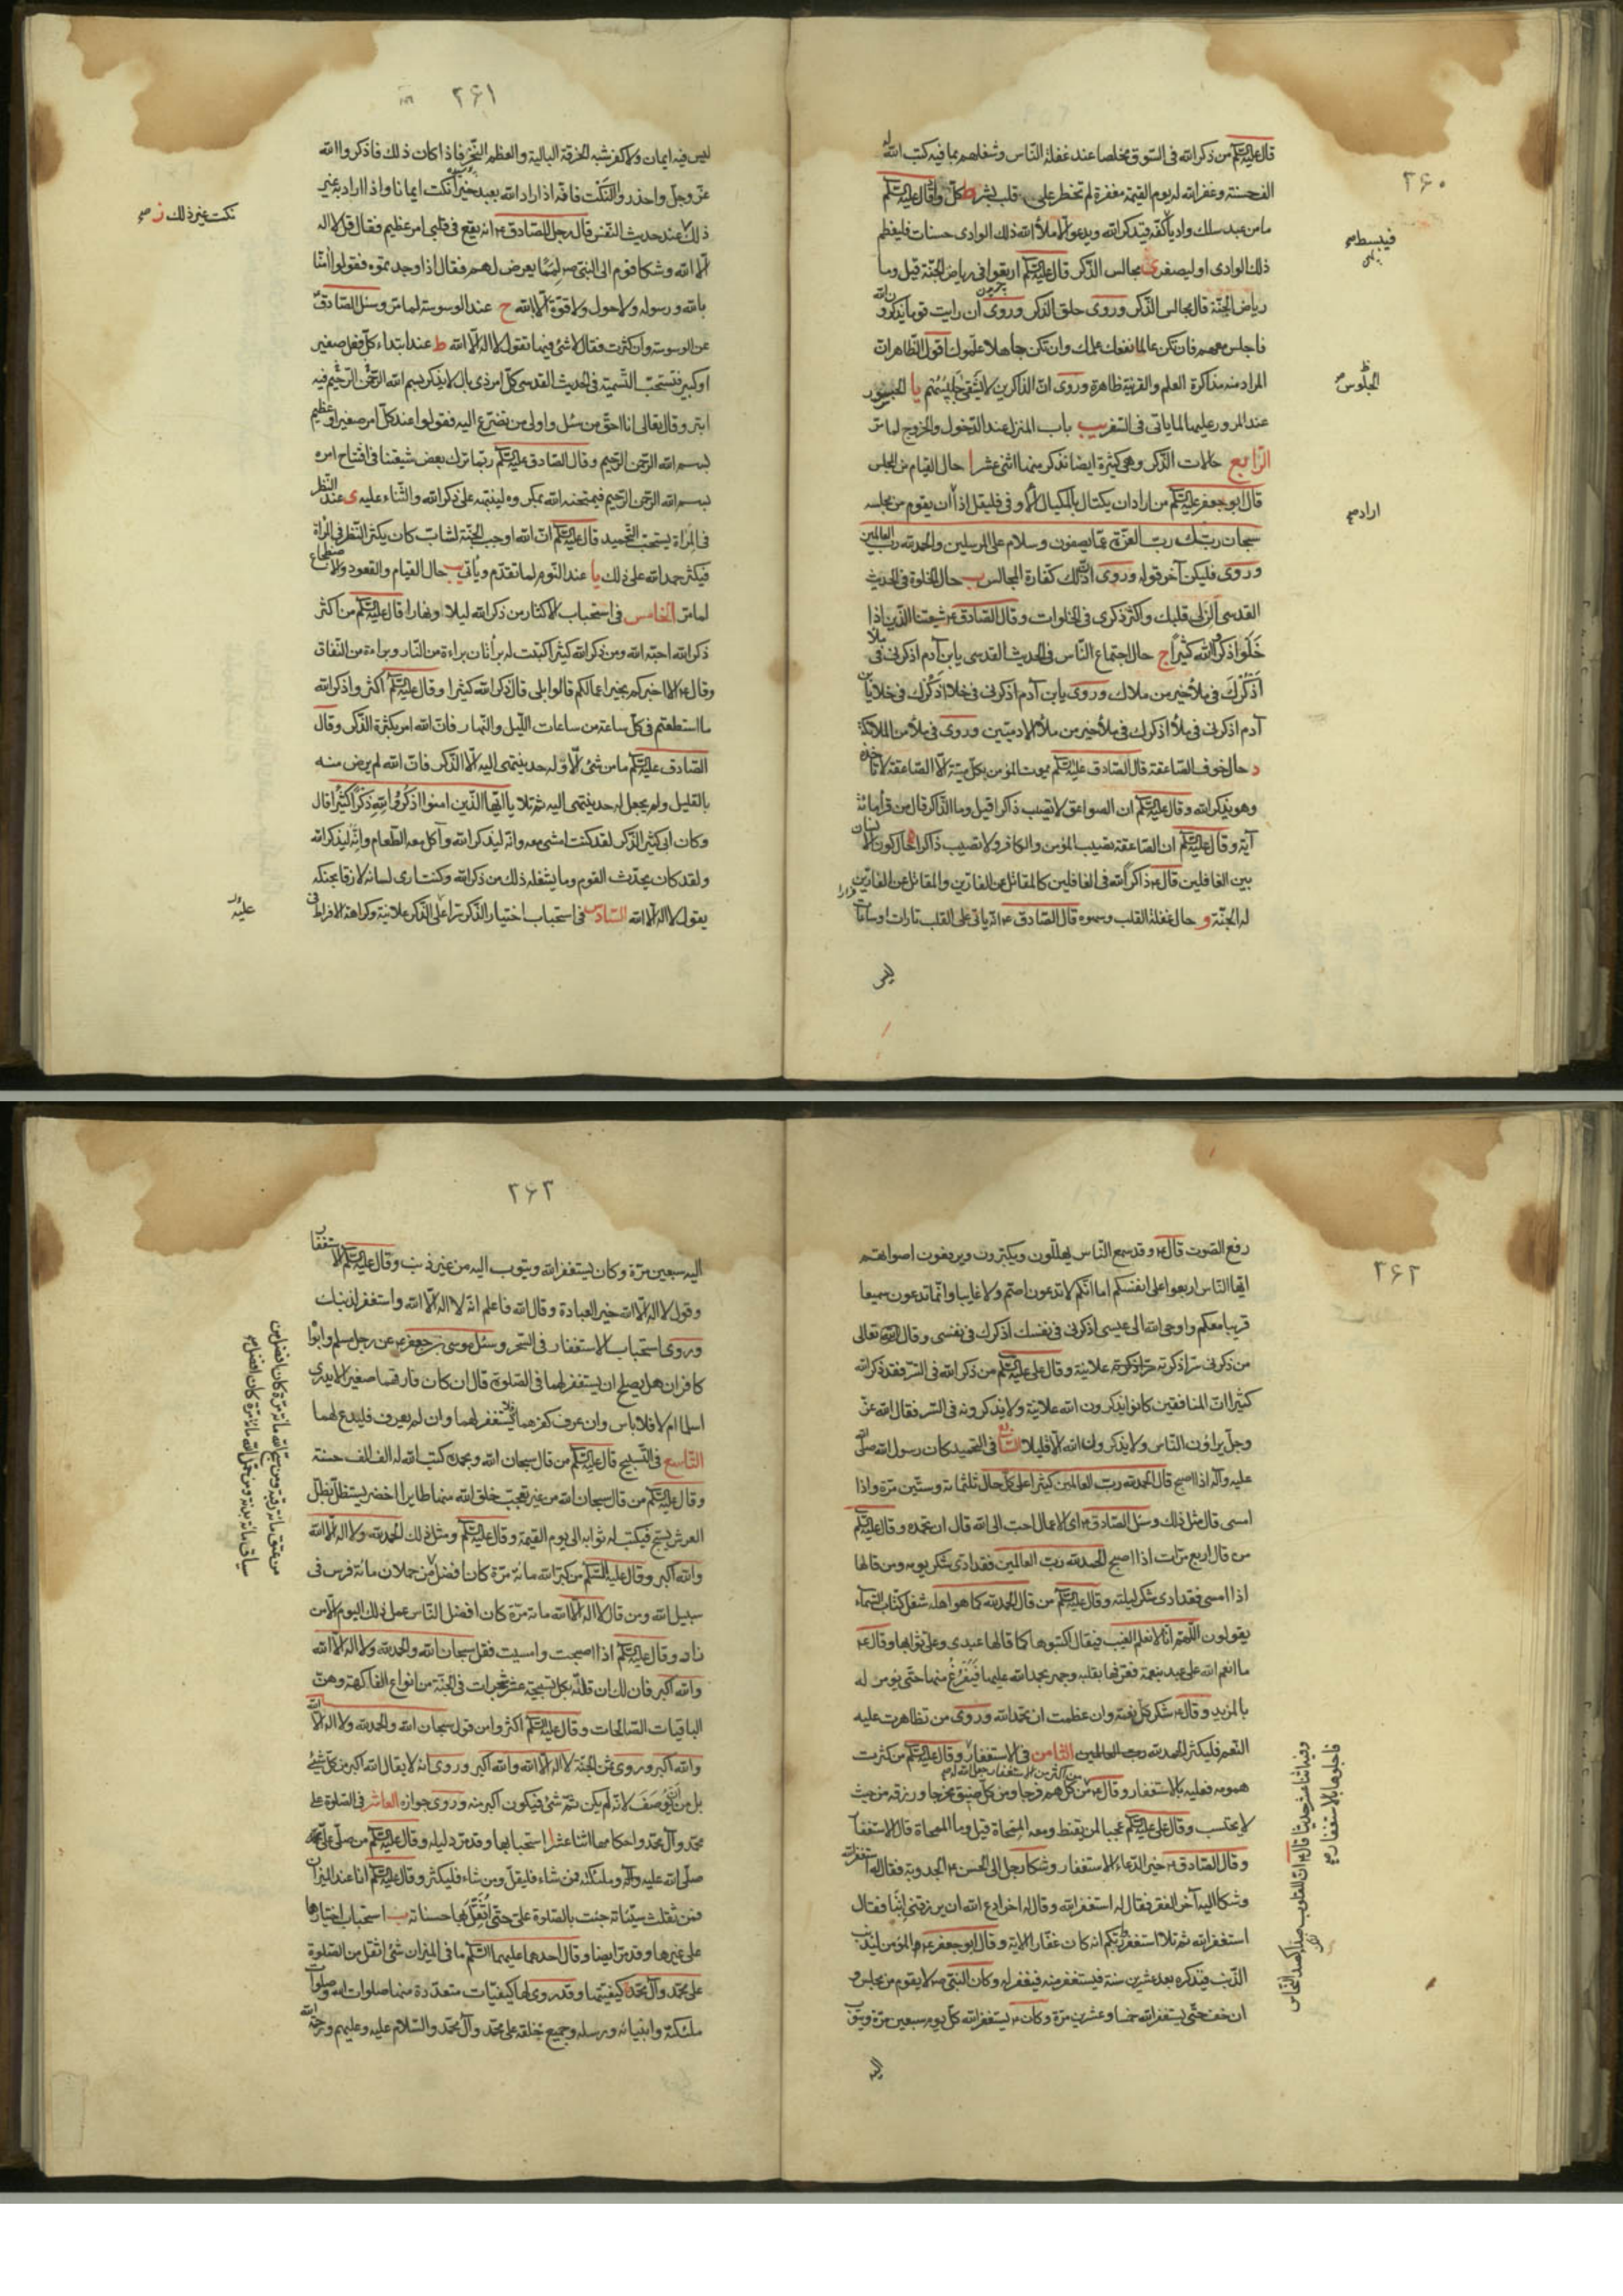 ٢۶٠
قال عليه السلام من ذكر الله في السوق مخلصا عند غفلة الناس وشغلهم بما فيه كتب الله له
الف حسنة وغفر الله له يوم القيمة مغفرة لم تخطر على قلب بشر ط كل واد قال عليه السلام
ما من عبد سلك واديا كفه فيذكر الله ويدعو الا ملأ الله ذلك الوادى حسنات فليعظم
ذلك الوادى او ليصغر ى مجالس الذكر قال عليه السلام ارتعوا في رياض الجنة قيل وما
رياض الجنة قال مجالس الذكر وروى حلق الذكر وروى ان رايت قوما يذكرون الله
فاجلس معهم فان تكن عالما نفعك علمك وان تكن جاهلا علموك اقول الظاهر ان
المراد منه مذاكرة العلم والقرينة ظاهرة وروى ان الذاكرين لا يشقى جليسهم يا الجسور
عند المرور عليها لما ياتى في السفر يب باب المنزل عند الدخول والخروج لما مر
الرابع حالات الذكر وهي كثيرة ايضا نذكر منها اثنى عشر ا حال القيام من المجلس
قال ابو جعفر عليه السلام من اراد ان يكتال بالمكيال الاوفى فليقل اذا ان يقوم من مجلسه
سبحان ربك رب العزة عما يصفون وسلام على المرسلين والحمد لله رب العالمين
وروى فليكن آخر قوله وروى ان ذلك كفارة المجالس ب حال الخلوة في الحديث
القدسى ألن لى قلبك واكثر ذكرى في الخلوات وقال الصادق ع شيعتنا الذين اذا
خلوا ذكروا الله كثيرا ج حال اجتماع الناس في الحديث القدسى يا بن آدم اذكرنى في ملأ
أذكرك في ملأ خير من ملاك وروى يا بن آدم اذكرنى في خلا اذكرك في خلا يا بن
آدم اذكرنى في ملأ اذكرك في ملأ خير من ملأ الادميين وروى في ملأ من الملائكة
د حال خوف الصاعقة قال الصادق عليه السلام يموت المؤمن بكل ميتة الا الصاعقة لا تاخذه
وهو يذكر الله وقال عليه السلام ان الصواعق لا تصيب ذاكرا قيل وما الذاكر قال من قرأ مائة
آية وقال عليه السلام ان الصاعقة تصيب المؤمن والكافر ولا تصيب ذاكرا ه حال كون الانسان
بين الغافلين قال ع ذاكر الله في الغافلين كالمقاتل عن الفارين والمقاتل عن الفارين
له الجنة و حال غفلة القلب وسهوه قال الصادق ع انه ياتى على القلب تارات او ساعات
ليس
فيبسط صح
الجلوس
اراد صح
٢۶١
ليس فيه ايمان ولا كفر شبه الخرقة البالية والعظم النخر فاذا كان ذلك فاذكروا الله
عز وجل واحذروا النكت فانه اذا اراد الله بعبد خيرا نكت ايمانا واذا اراد به غير
ذلك عند حديث النفس قال رجل للصادق ع انه يقع في قلبي امر عظيم فقال قل لا اله
الا الله وشكا قوم الى النبى ص لمما يعرض لهم فقال اذا وجدتموه فقولوا امنا
بالله ورسوله ولا حول ولا قوة الا بالله ح عند الوسوسة لما مر وسئل الصادق ع
عن الوسوسة وان كثرت فقال لا شئ فيها تقول لا اله الا الله ط عند ابتداء كل فعل صغير
او كبير فتستحب التسمية في الحديث القدسى كل امر ذى بال لا يذكر بسم الله الرحمن الرحيم فيه
ابتر وقال تعالى انا احق من سئل واولى من تضرع اليه فقولوا عند كل امر صغير او عظيم
بسم الله الرحمن الرحيم وقال الصادق عليه السلام ربما ترك بعض شيعتنا في افتتاح امره
بسم الله الرحمن الرحيم فيمتحنه الله بمكروه لينبهه على ذكر الله والثناء عليه ى عند النظر
في المرآة يستحب التحميد قال عليه السلام ان الله اوجب الجنة لشاب كان يكثر النظر في المرآة
فيكثر حمد الله على ذلك يا عند النوم لما تقدم وياتى يب حال القيام والقعود والاضطجاع
لما مر الخامس في استحباب الاكثار من ذكر الله ليلا ونهارا قال عليه السلام من اكثر
ذكر الله احبه الله ومن ذكر الله كثيرا كتبت له براتان براءة من النار وبراءة من النفاق
وقال ع الا اخبركم بخير اعمالكم قالوا بلى قال ذكر الله كثيرا وقال عليه السلام اكثروا ذكر الله
ما استطعتم في كل ساعة من ساعات الليل والنهار فان الله امر بكثرة الذكر وقال
الصادق عليه السلام ما من شئ الا وله حد ينتهى اليه الا الذكر فان الله لم يرض منه
بالقليل ولم يجعل له حد ينتهى اليه ثم تلا يا ايها الذين امنوا اذكروا الله ذكرا كثيرا قال
وكان ابى كثير الذكر لقد كنت امشى معه وانه ليذكر الله وآكل معه الطعام وانه ليذكر الله
ولقد كان يحدث القوم وما يشغله ذلك عن ذكر الله وكنت ارى لسانه لازقا بحنكه
يقول لا اله الا الله السادس في استحباب اختيار الذكر سرا على الذكر علانية وكراهة الافراط في
نكت غير ذلك ز صح
عليه
٢۶٢
رفع الصوت قال ع وقد سمع الناس يهللون ويكبرون ويرفعون اصواتهم
ايها الناس اربعوا على انفسكم اما انكم لا تدعون اصم ولا غايبا وانما تدعون سميعا
قريبا معكم واوحى الله الى عيسى اذكرنى في نفسك اذكرك في نفسى وقال الله تعالى
من ذكرنى سرا ذكرته علانية وقال على عليه السلام من ذكر الله في السر فقد ذكر الله
كثيرا ان المنافقين كانوا يذكرون الله علانية ولا يذكرونه في السر فقال الله عز
وجل يراؤن الناس ولا يذكرون الله الا قليلا السابع في التحميد كان رسول الله صلى الله
عليه وآله اذا اصبح قال الحمد لله رب العالمين كثيرا على كل حال ثلثمائة وستين مرة واذا
امسى قال مثل ذلك وسئل الصادق ع اى الاعمال احب الى الله قال ان تحمده وقال عليه السلام
من قال اربع مرات اذا اصبح الحمد لله رب العالمين فقد ادى شكر يومه ومن قالها
اذا امسى فقد ادى شكر ليلته وقال عليه السلام من قال الحمد لله كما هو اهله شغل كتاب السماء
يقولون اللهم انا لا نعلم الغيب فيقال اكتبوها كما قالها عبدى وعلى ثوابها وقال ع
ما انعم الله على عبد بنعمة فعرفها بقلبه وجهر بحمد الله عليها فيفرغ منها حتى يؤمر له
بالمزيد وقال ع شكر كل نعمة وان عظمت ان تحمد الله وروى من تظاهرت عليه
النعم فليكثر الحمد لله رب العالمين الثامن في الاستغفار وقال عليه السلام من كثرت
همومه فعليه بالاستغفار وقال ع من اكثر من الاستغفار جعل الله له من كل هم فرجا ومن كل ضيق مخرجا ورزقه من حيث
لا يحتسب وقال على عليه السلام عجبا لمن يقنط ومعه الممحاة قيل وما الممحاة قال الاستغفار
وقال الصادق ع خير الدعاء الاستغفار وشكا رجل الى الحسن ع الجدوبة فقال له استغفر الله
وشكا اليه آخر الفقر فقال له استغفر الله وقال له اخر ادع الله ان يرزقنى ابنا فقال
استغفر الله ثم تلا استغفروا ربكم انه كان غفارا الاية وقال ابو جعفر ع ان المؤمن ليذنب
الذنب فيذكره بعد عشرين سنة فيستغفر منه فيغفر له وكان النبى ص لا يقوم من مجلس و
ان خف حتى يستغفر الله خمسا وعشرين مرة وكان ع يستغفر الله كل يوم سبعين مرة ويتوب
اليه
وفيه اثنا عشر حديثا قال ع ان للقلوب صداء كصداء النحاس
فاجلوها بالاستغفار صح
٢۶٣
اليه سبعين مرة وكان يستغفر الله ويتوب اليه من غير ذنب وقال عليه السلام الاستغفار
وقول لا اله الا الله خير العبادة وقال الله فاعلم انه لا اله الا الله واستغفر لذنبك
وروى استحباب الاستغفار في السحر وسئل موسى بن جعفر ع عن رجل مسلم وابوا
كافران هل يصلح ان يستغفر لهما في الصلوة قال ان كان فارقهما صغيرا لا يدرى
اسلما ام لا فلا باس وان عرف كفرهما فلا يستغفر لهما وان لم يعرف فليدع لهما
التاسع في التسبيح قال عليه السلام من قال سبحان الله وبحمده كتب الله له الف الف حسنة
وقال عليه السلام من قال سبحان الله من غير تعجب خلق الله منها طايرا اخضر يستظل بظل
العرش يسبح فيكتب له ثوابه الى يوم القيمة وقال عليه السلام ومثل ذلك الحمد لله ولا اله الا الله
والله اكبر وقال عليه السلام من كبر الله مائة مرة كان افضل من حملان مائة فرس في
سبيل الله ومن قال لا اله الا الله مائة مرة كان افضل الناس عمل ذلك اليوم الا من
زاد وقال عليه السلام اذا اصبحت وامسيت فقل سبحان الله والحمد لله ولا اله الا الله
والله اكبر فان لك ان قلته بكل تسبيحة عشر شجرات في الجنة من انواع الفاكهة وهن
الباقيات الصالحات وقال عليه السلام اكثروا من قول سبحان الله والحمد لله ولا اله الا الله
والله اكبر وروى ثمن الجنة لا اله الا الله والله اكبر وروى انه لا يقال الله اكبر من كل شئ
بل من ان يوصف لانه لم يكن ثم شئ فيكون اكبر منه وروى جوازه العاشر في الصلوة على
محمد وآل محمد واحكامها اثنا عشر ا استحبابها وقد مر دليله وقال عليه السلام من صلى على محمد
صلى الله عليه وآله وملئكته فمن شاء فليقل ومن شاء فليكثر وقال عليه السلام انا عند الميزان
فمن ثقلت سيئاته جئت بالصلوة على حتى اثقل بها حسناته ب استحباب اختيارها
على غيرها وقد مر ايضا وقال احدهما عليهما السلام ما في الميزان شئ اثقل من الصلوة
على محمد وآل محمد كيفيتها وقد روى لها كيفيات متعددة منها صلوات الله وصلوات
ملئكته وانبيائه ورسله وجميع خلقه على محمد وآل محمد والسلام عليه وعليهم ورحمة الله
من عتق مائة رقبة ومن سبح الله مائة مرة كان افضل من
سياق مائة بدنة ومن حمد الله مائة مرة كان افضل صح